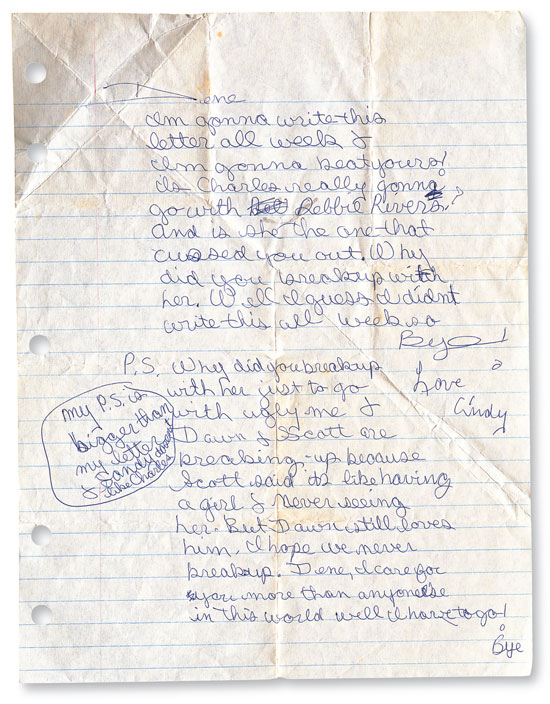 Dene
Im gonna write this
letter all week &
Im gonna beat yours!
Is Charles really gonna
go with Debbie Rivers?
and is she the one that
cussed you out. Why
did you breakup with
her. Well I guess I didnt
write this all week so
Bye!
Love
Cindy
P.S. Why did you breakup
with her just to go
with ugly me &
Dawn & Scott are
breaking-up because
Scott said its like having
a girl & never seeing
her. But Dawn still loves
him. I hope we never
breakup. Dene, I care for
you more than anyone else
in this world well I have to go!
Bye
my P.S. is
bigger than
my letter
& Sandy doesnt
like Charles